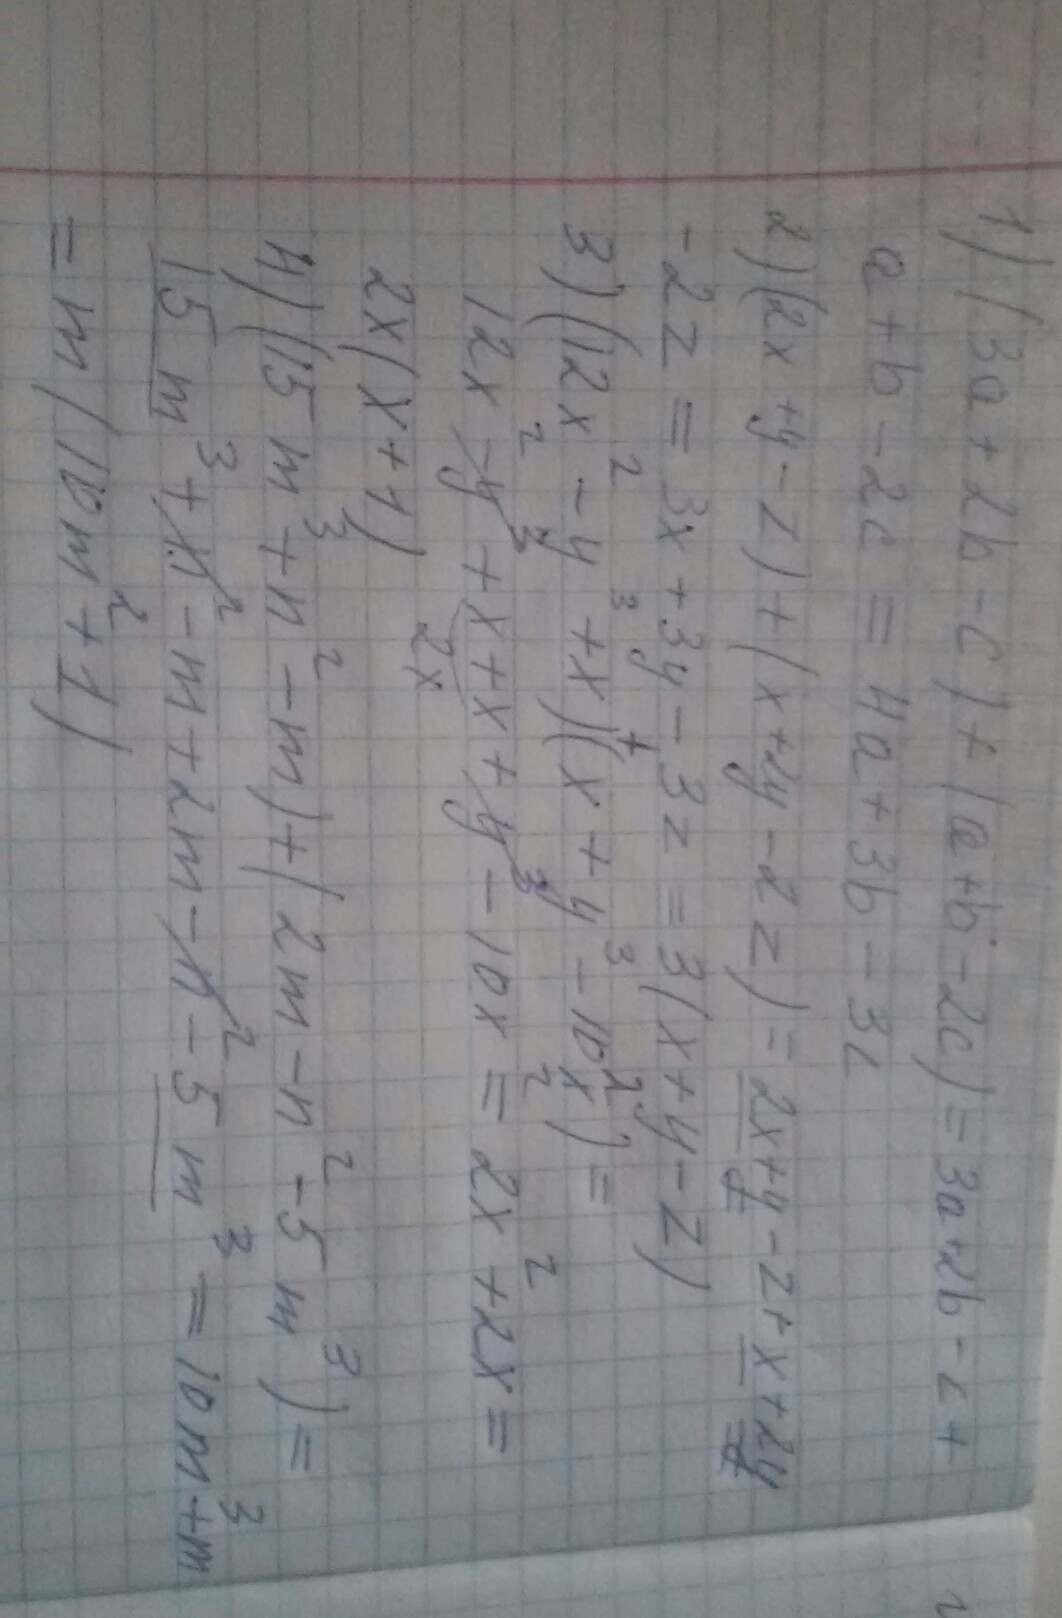 1) (3a+2b-c)+(a+b-2c)=3a+2b-c+
a+b-2c=4a+3b-3c
2) (2x+y-z)+(x+2y-2z)=2x+y-z+x+2y
-2z=3x+3y-3z=3(x+y-z)
3) (12x²-y³+x)+(x+y³-10x²)=
12x²-y³+x+x+y³-10x²=2x²+2x=
2x
2x(x+1)
4) (15m³+n²-m)+(2m-n²-5m³)=
15m³+n²-m+2m-n²-5m³=10m³+m
=m(10m²+1)